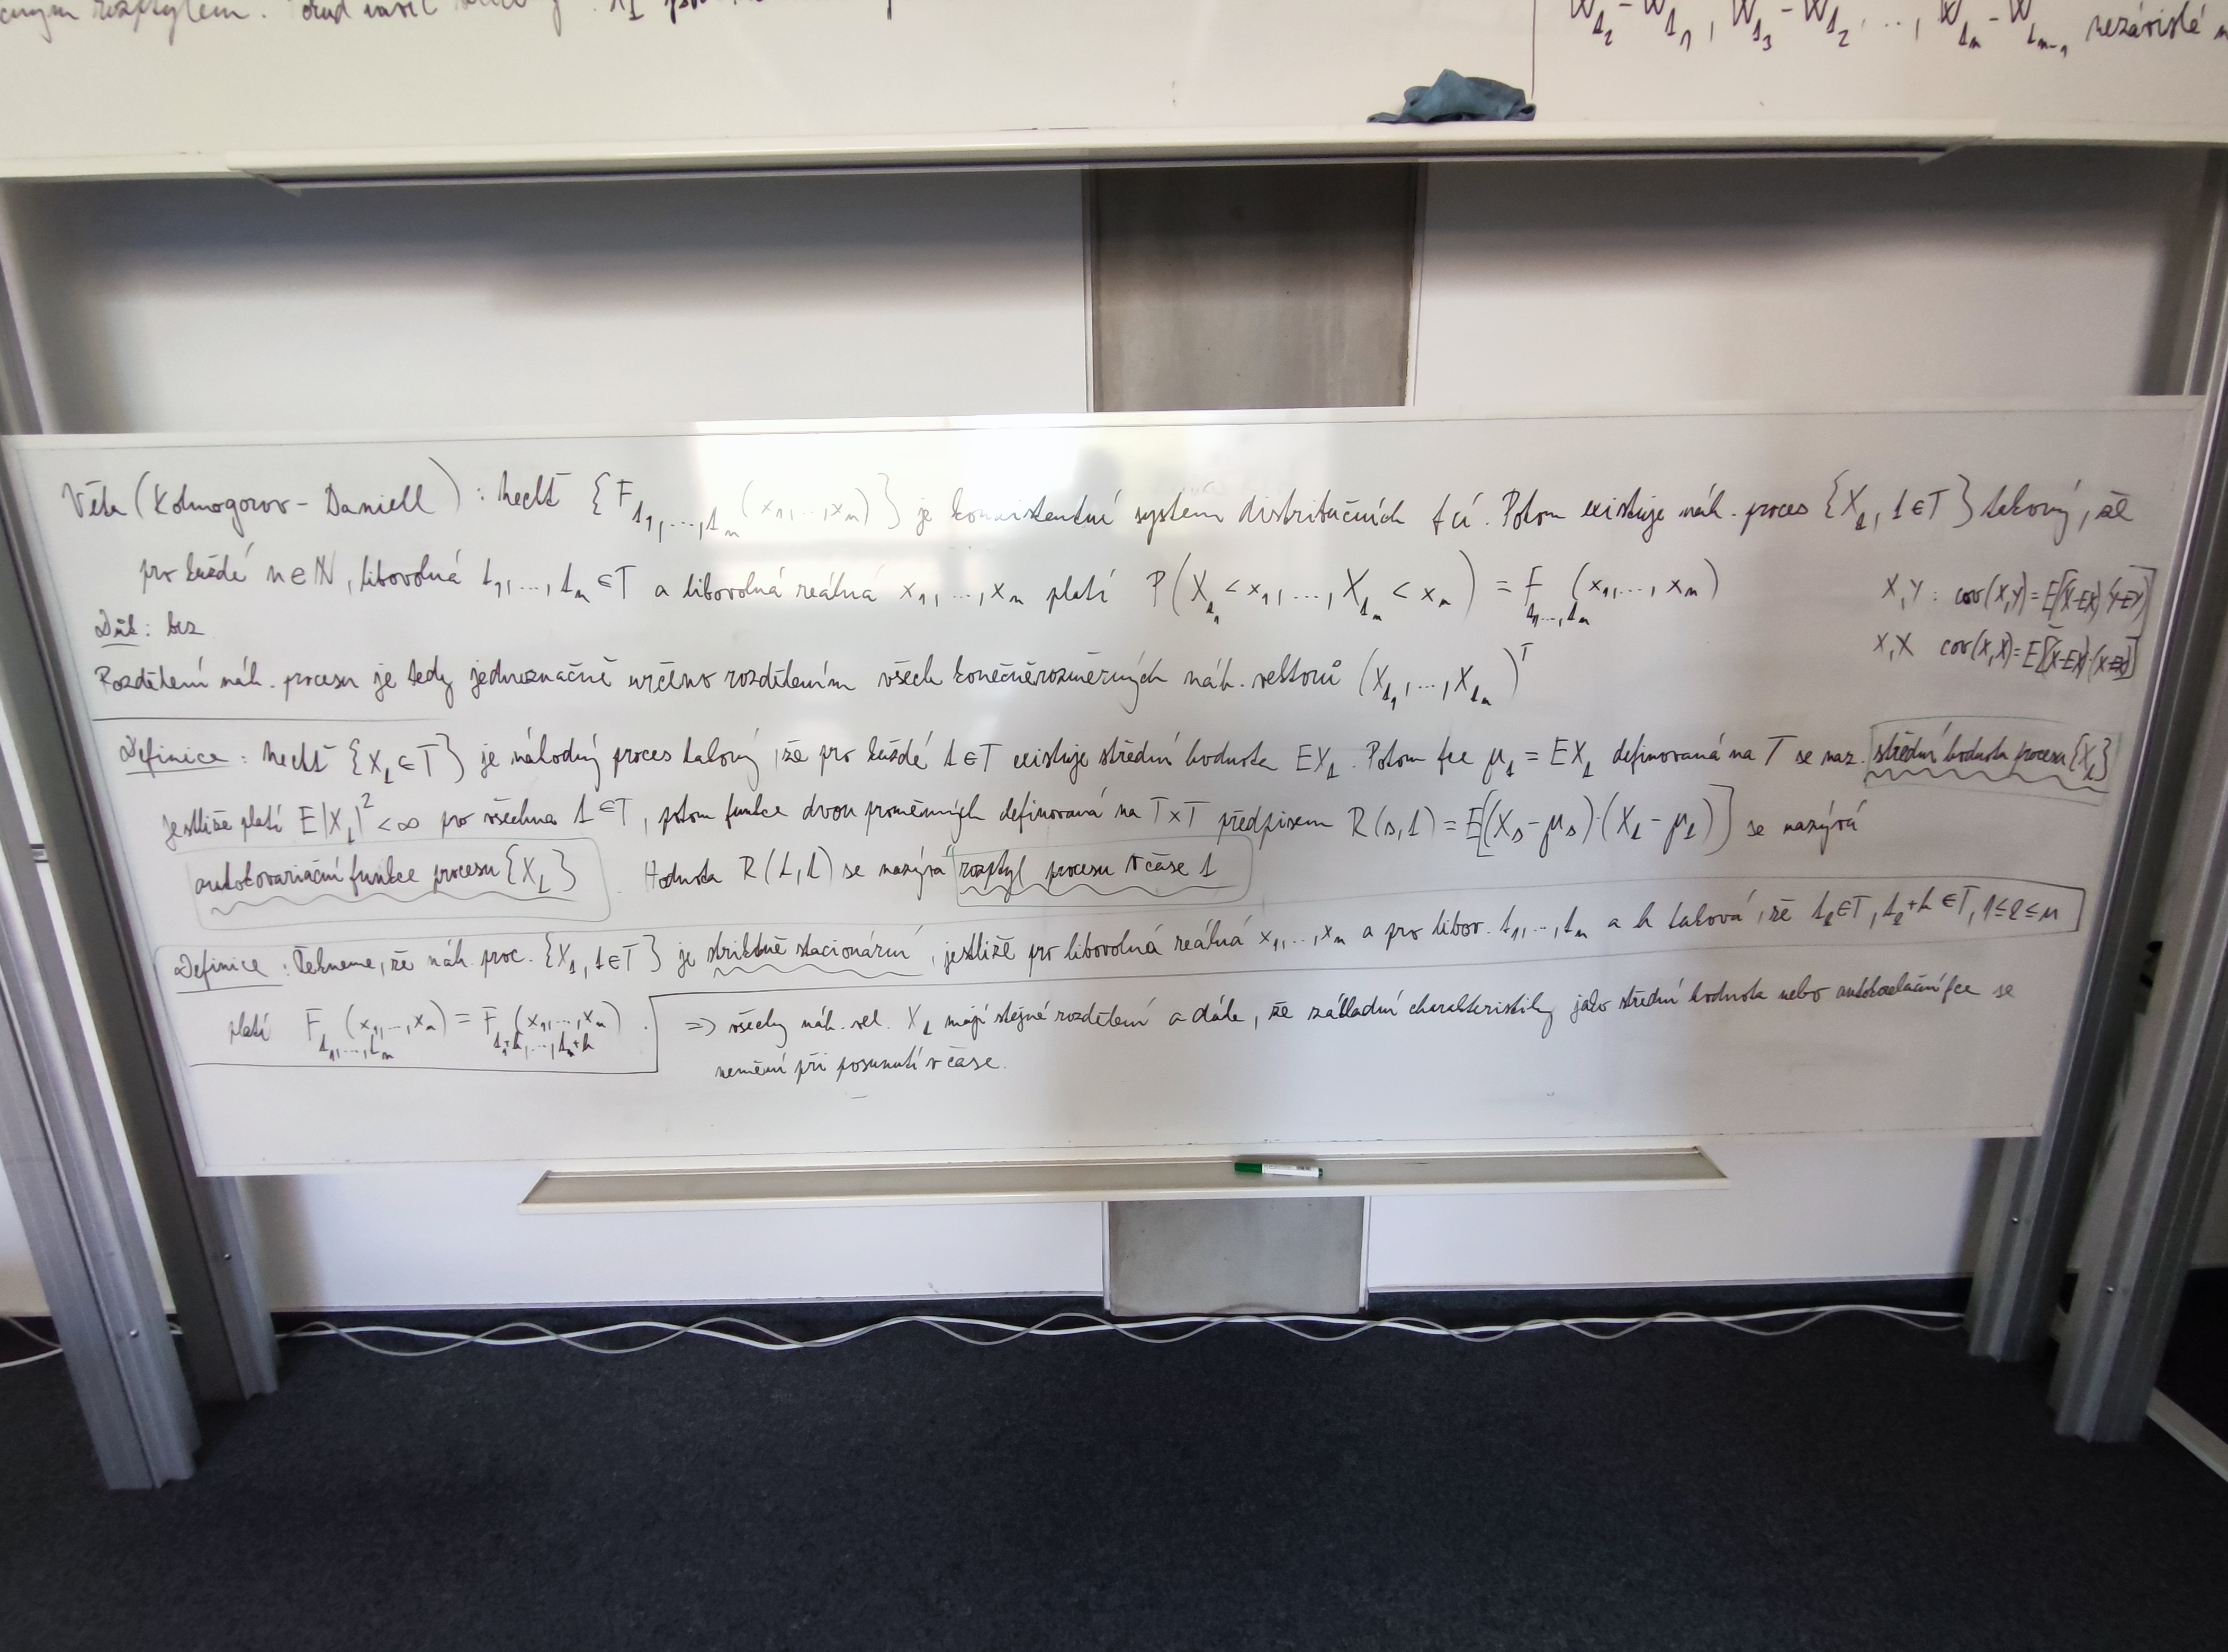 čným rozptylem.
W_{t_2} - W_{t_1}, W_{t_3} - W_{t_2}, ..., W_{t_n} - W_{t_{n-1}} nezávislé
Věta (Kolmogorov - Daniell): Nechť {F_{t_1,...,t_n}(x_1,...,x_n)} je konzistentní systém distribučních fcí. Potom existuje náh. proces {X_t, t∈T} takový, že
pro každé n∈ℕ, libovolná t_1,...,t_n ∈T a libovolná reálná x_1,...,x_n platí P(X_{t_1} < x_1,..., X_{t_n} < x_n) = F_{t_1,...,t_n}(x_1,...,x_n)
X,Y: cov(X,Y)=E[(X-EX)(Y-EY)]
Důk: bez
X,X cov(X,X)=E[(X-EX)·(X-EX)]
Rozdělení náh. procesu je tedy jednoznačně určeno rozdělením všech konečněrozměrných náh. vektorů (X_{t_1},...,X_{t_n})^T
Definice: Nechť {X_t ∈T} je náhodný proces takový, že pro každé t∈T existuje střední hodnota EX_t. Potom fce μ_t = EX_t definovaná na T se naz. střední hodnota procesu {X_t}
Jestliže platí E|X_t|^2 < ∞ pro všechna t∈T, potom funkce dvou proměnných definovaná na T×T předpisem R(s,t) = E[(X_s - μ_s)·(X_t - μ_t)] se nazývá
autokovarianční funkce procesu {X_t}. Hodnota R(t,t) se nazývá rozptyl procesu v čase t
Definice: Řekneme, že náh. proc. {X_t, t∈T} je striktně stacionární, jestliže pro libovolná reálná x_1,...,x_n a pro libov. t_1,...,t_n a h taková, že t_k∈T, t_k+h∈T, 1≤k≤n
platí F_{t_1,...,t_n}(x_1,...,x_n) = F_{t_1+h,...,t_n+h}(x_1,...,x_n). => všechny náh. vel. X_t mají stejné rozdělení a dále, že základní charakteristiky jako střední hodnota nebo fce se
nemění při posunutí v čase.